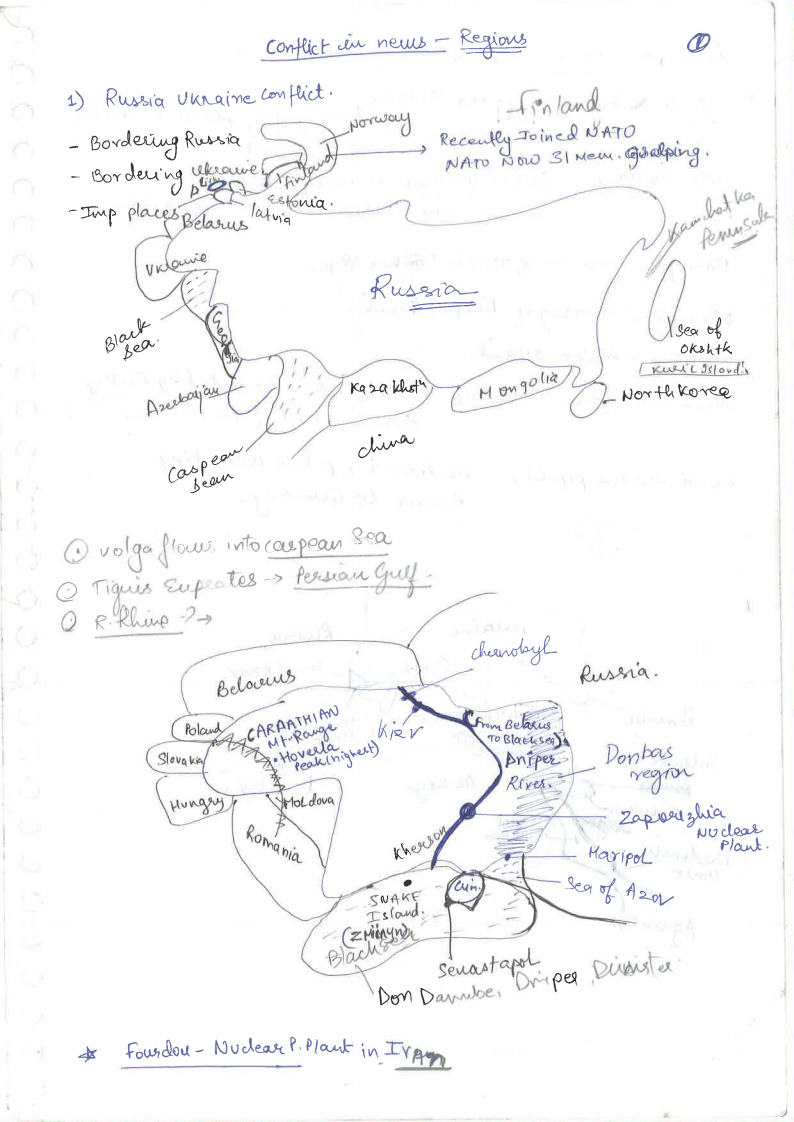 Conflict in news - Regions
①
1) Russia Ukraine Conflict.
Finland
Norway
- Bordering Russia
Recently Joined NATO
NATO NOW 31 Mem.
- Bordering Ukraine
Finland
- Imp places
Estonia.
latvia
Belarus
Kamchatka
Peninsula
Ukraine
Russia
Black
Sea.
Georgia
Sea of
Okshtk
Kuril Island
Azerbaijan
Kazakhstn
Mongolia
North Korea
China
Caspean
Sean
volga flows into caspean Sea
Tiguis Eupeates → Persian Gulf.
R. Rhine -? →
Chernobyl
Belarus
Russia.
Poland
CARAATHIAN
Mt. Range
• Hoverla
Peak (highest)
Kiev
(From Belarus
To Black sea).
Slovakia
Dniper
River.
Donbas
region
Hungry
Moldova
Zaporizhia
Nuclear
Plant.
Romania
Kherson
Maripol
Crim.
Sea of Azov
SNAKE
Island.
(Zmiinyn)
Black Sea
Sevastapol
Don Danube, Dniper, Dinister
* Fourdou - Nuclear P. Plant in Iran